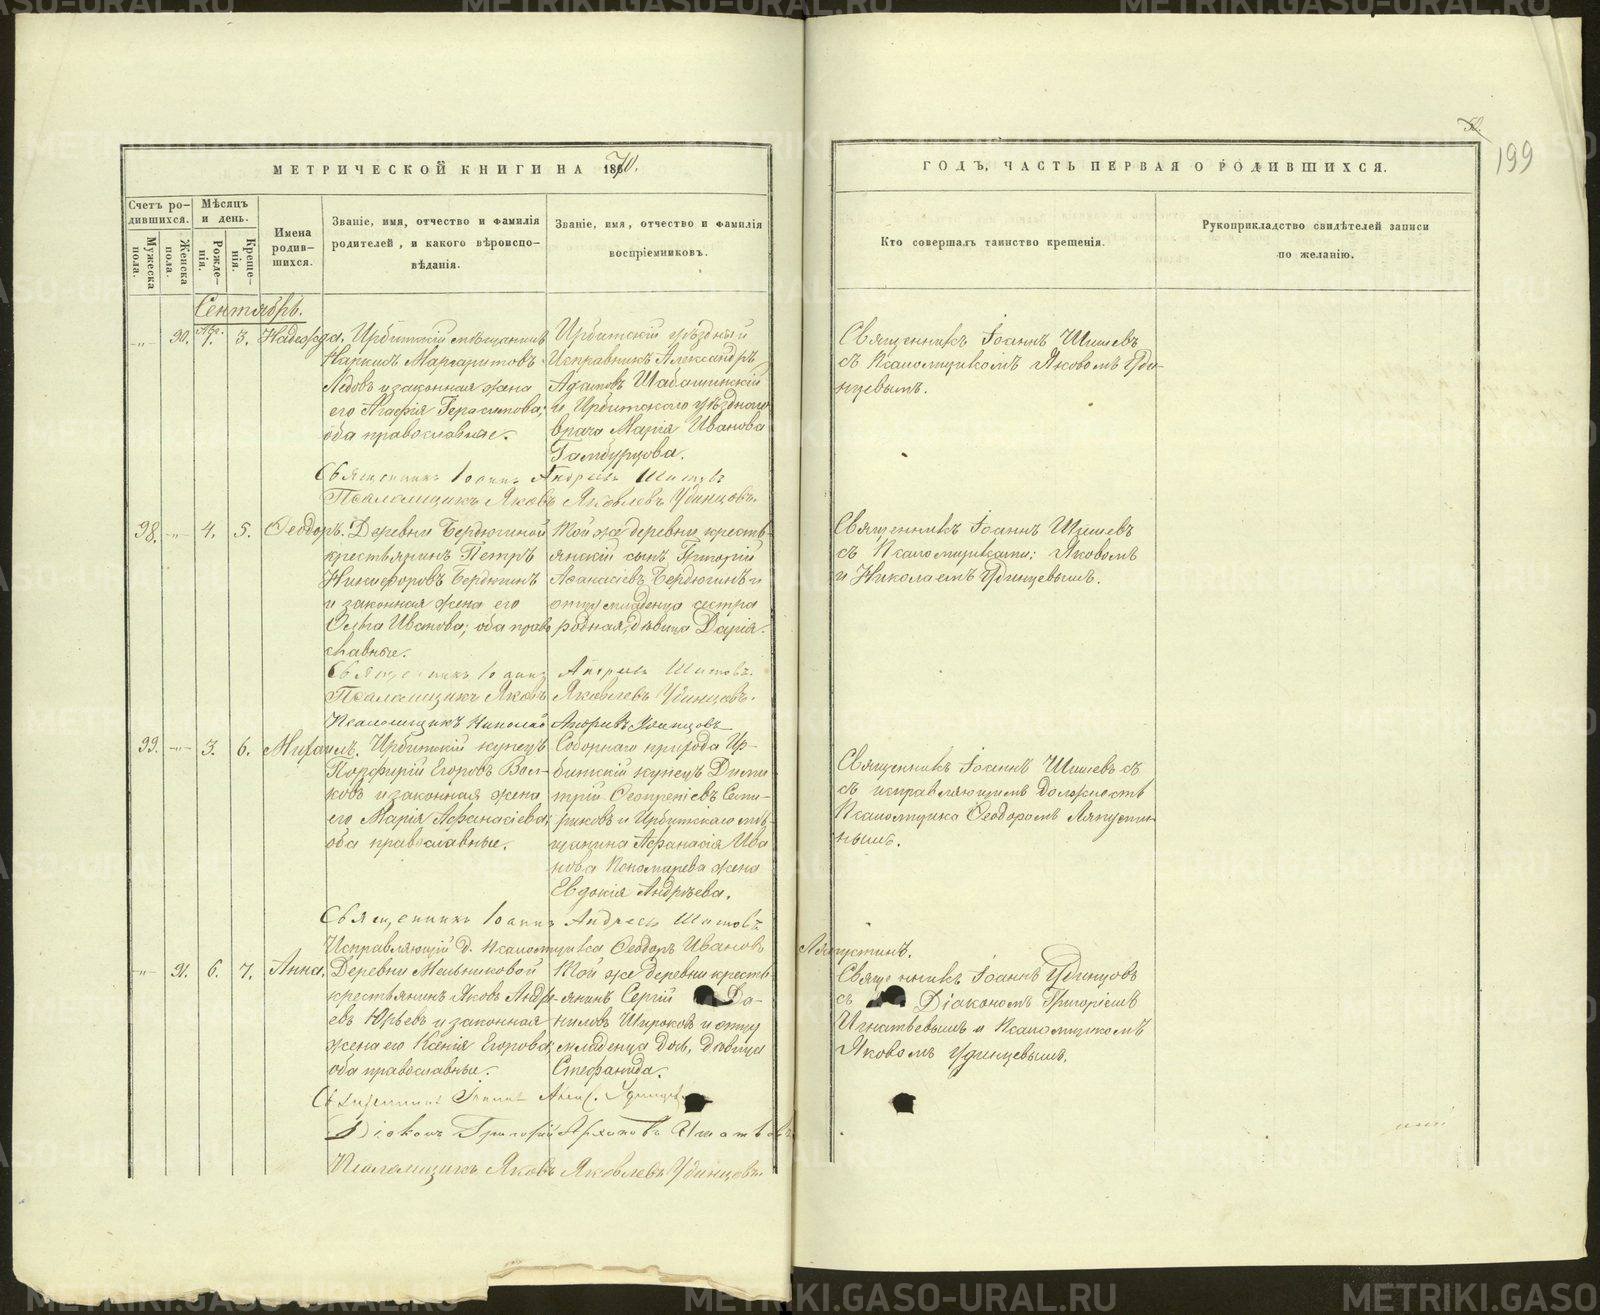 МЕТРИЧЕСКОЙ КНИГИ НА 1870.
ГОДЪ, ЧАСТЬ ПЕРВАЯ О РОДИВШИХСЯ.
199
Счетъ ро-
дившихся.
Мужеска пола.
Женска пола.
Мѣсяцъ
и день.
Рожде-
нія.
Креще-
нія.
Имена
родив-
шихся.
Званіе, имя, отчество и фамилія
родителей, и какого вѣроиспо-
вѣданія.
Званіе, имя, отчество и фамилія
воспріемниковъ.
Кто совершалъ таинство крещенія.
Рукоприкладство свидѣтелей записи
по желанію.
Сентябрь.
90. 1. 3. Надежда.
Ирбитскій мѣщанинъ
Маргаритовъ
и законная жена
его Агафія Герасимова;
оба православные.
Ирбитскій уѣздный
Исправникъ Александръ
Адамовъ
и Ирбитскаго уѣзднаго
врача Марія Иванова
Гамбурцова.
Священникъ Іоаннъ Шишевъ
съ Псаломщикомъ Яковомъ Уди-
нцевымъ.
Священникъ Іоаннъ Андреевъ
Псаломщикъ Яковъ Яковлевъ Удинцовъ.
98. -"- 4. 5. Ѳеодоръ.
Деревни Бердюгиной
крестьянинъ Петръ
Никифоровъ Бердюгинъ
и законная жена его
Ольга Иванова; оба право
славные.
Той же деревни кресть-
янскій сынъ Григорій
Аѳанасіевъ Бердюгинъ и
отцу младенца сестра
родная, дѣвица Дарія.
Священникъ Іоаннъ Шишевъ
съ Псаломщиками: Яковомъ
и Николаемъ Удинцевымъ.
Священникъ Іоаннъ Андреевъ
Псаломщикъ Яковъ Яковлевъ Удинцовъ.
Псаломщикъ Николай Андреевъ Удинцовъ
99. -"- 3. 6. Михаилъ.
Ирбитскій купецъ
Порфирій Егоровъ Вол-
ковъ и законная жена
его Марія Аѳанасіева;
оба православные.
Соборнаго прихода Ир-
битскій купецъ Дими-
трій
и Ирбитскаго мѣ-
щанина Аѳанасія Ива
нова Пономарева жена
Евдокія Андреева.
Священникъ Іоаннъ Шишевъ съ
съ исправляющимъ должность
Псаломщика Ѳеодоромъ Ляпусти-
нымъ.
Священникъ Іоаннъ Андреевъ
Исправляющій д. Псаломщика Ѳеодоръ Ивановъ Ляпустинъ.
-"- 91. 6. 7. Анна.
Деревни Мельниковой
крестьянинъ Яковъ Андре-
евъ Юрьевъ и законная
жена его Ксенія Егорова;
оба православные.
Той же деревни кресть-
янинъ Сергій Да-
ниловъ Широковъ и отцу
младенца дочь, дѣвица
Стефанида.
Священникъ Іоаннъ Удинцовъ
съ Діакономъ Григоріемъ
Игнатьевымъ и Псаломщикомъ
Яковомъ Удинцевымъ.
Священникъ Іоаннъ
Діаконъ Григорій Игнатьевъ
Псаломщикъ Яковъ Яковлевъ Удинцовъ.
METRIKI.GASO-URAL.RU